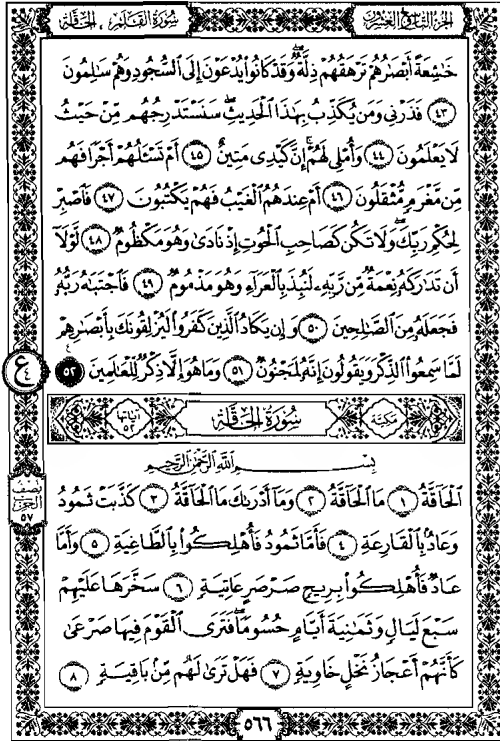 الجزء التاسع والعشرون
سورة القلم ، الحاقة
خَاشِعَةً أَبْصَارُهُمْ تَرْهَقُهُمْ ذِلَّةٌ ۖ وَقَدْ كَانُوا يُدْعَوْنَ إِلَى السُّجُودِ وَهُمْ سَالِمُونَ
﴿٤٣﴾ فَذَرْنِي وَمَن يُكَذِّبُ بِهَـٰذَا الْحَدِيثِ ۖ سَنَسْتَدْرِجُهُم مِّنْ حَيْثُ
لَا يَعْلَمُونَ ﴿٤٤﴾ وَأُمْلِي لَهُمْ ۚ إِنَّ كَيْدِي مَتِينٌ ﴿٤٥﴾ أَمْ تَسْـَٔلُهُمْ أَجْرًا فَهُم
مِّن مَّغْرَمٍ مُّثْقَلُونَ ﴿٤٦﴾ أَمْ عِندَهُمُ الْغَيْبُ فَهُمْ يَكْتُبُونَ ﴿٤٧﴾ فَاصْبِرْ
لِحُكْمِ رَبِّكَ وَلَا تَكُن كَصَاحِبِ الْحُوتِ إِذْ نَادَىٰ وَهُوَ مَكْظُومٌ ﴿٤٨﴾ لَّوْلَا
أَن تَدَارَكَهُ نِعْمَةٌ مِّن رَّبِّهِ لَنُبِذَ بِالْعَرَاءِ وَهُوَ مَذْمُومٌ ﴿٤٩﴾ فَاجْتَبَاهُ رَبُّهُ
فَجَعَلَهُ مِنَ الصَّالِحِينَ ﴿٥٠﴾ وَإِن يَكَادُ الَّذِينَ كَفَرُوا لَيُزْلِقُونَكَ بِأَبْصَارِهِمْ
لَمَّا سَمِعُوا الذِّكْرَ وَيَقُولُونَ إِنَّهُ لَمَجْنُونٌ ﴿٥١﴾ وَمَا هُوَ إِلَّا ذِكْرٌ لِّلْعَالَمِينَ ﴿٥٢﴾
ع
مكية
سورة الحاقة
آياتها ٥٢
بِسْمِ اللَّهِ الرَّحْمَـٰنِ الرَّحِيمِ
الْحَاقَّةُ ﴿١﴾ مَا الْحَاقَّةُ ﴿٢﴾ وَمَا أَدْرَاكَ مَا الْحَاقَّةُ ﴿٣﴾ كَذَّبَتْ ثَمُودُ
نصف الحزب ٥٧
وَعَادٌ بِالْقَارِعَةِ ﴿٤﴾ فَأَمَّا ثَمُودُ فَأُهْلِكُوا بِالطَّاغِيَةِ ﴿٥﴾ وَأَمَّا
عَادٌ فَأُهْلِكُوا بِرِيحٍ صَرْصَرٍ عَاتِيَةٍ ﴿٦﴾ سَخَّرَهَا عَلَيْهِمْ
سَبْعَ لَيَالٍ وَثَمَـٰنِيَةَ أَيَّامٍ حُسُومًا ۖ فَتَرَى الْقَوْمَ فِيهَا صَرْعَىٰ
كَأَنَّهُمْ أَعْجَازُ نَخْلٍ خَاوِيَةٍ ﴿٧﴾ فَهَلْ تَرَىٰ لَهُم مِّن بَاقِيَةٍ ﴿٨﴾
٥٦٦